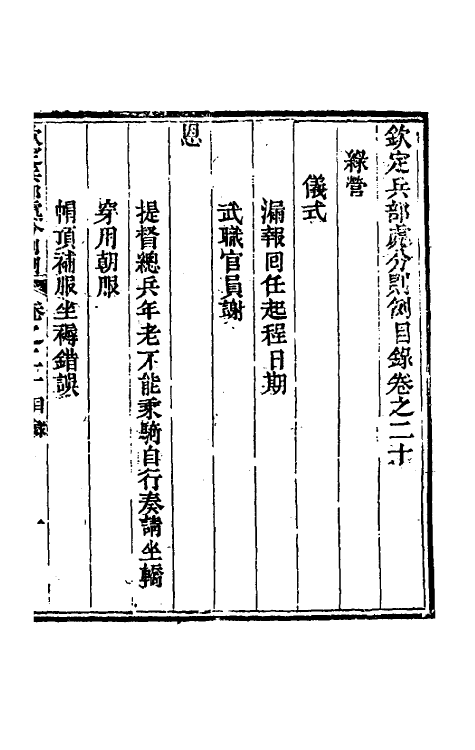 欽定兵部處分則例目錄卷之二十
綠營
儀式
漏報囘任起程日期
武職官員謝
恩
提督總兵年老不能乘騎自行奏請坐轎
穿用朝服
帽頂補服坐褥錯誤
欽定兵部處分則例 卷之二十目錄 一